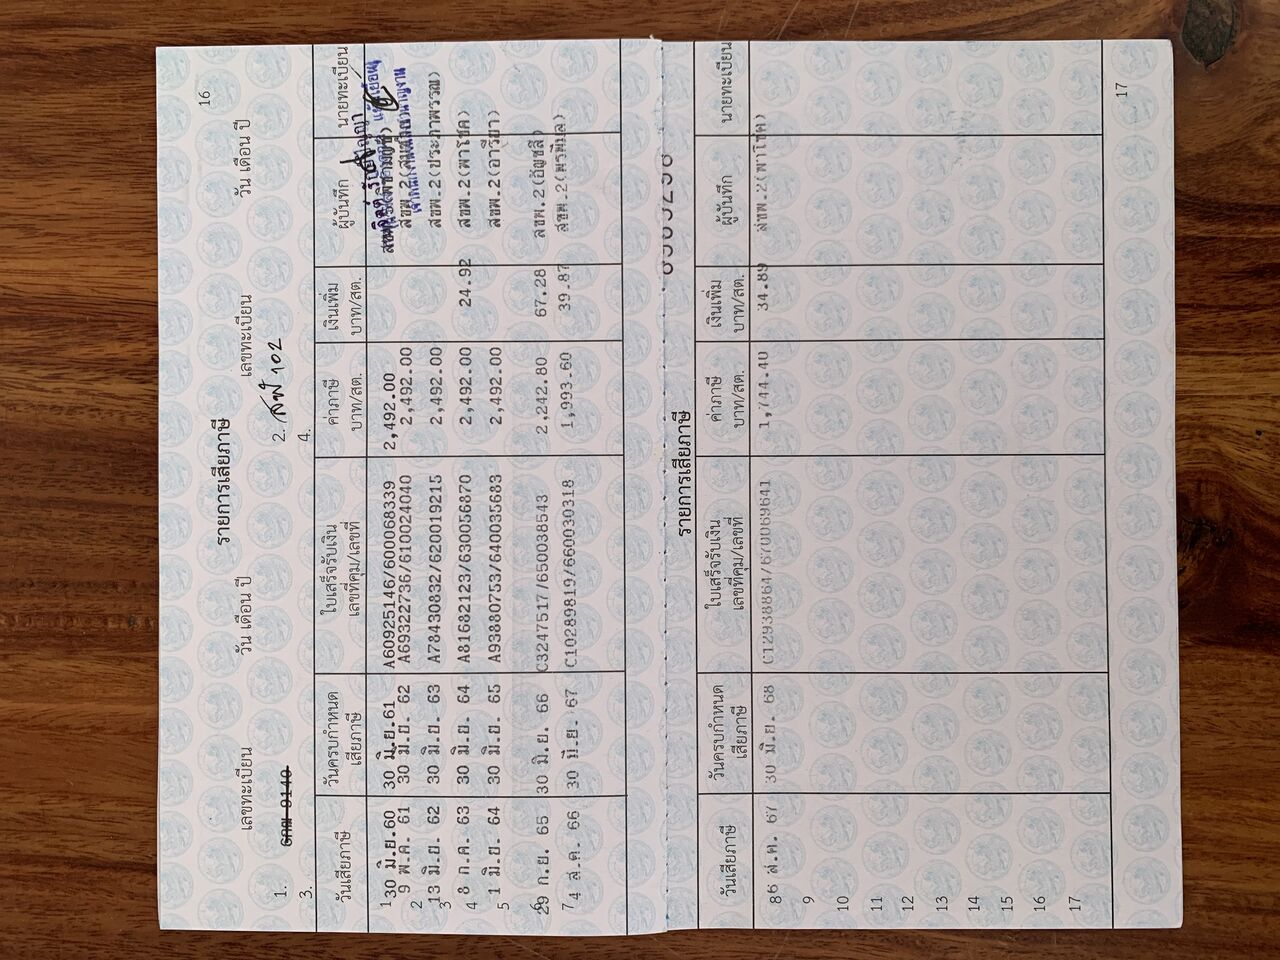 16
รายการเสียภาษี
เลขทะเบียน วัน เดือน ปี เลขทะเบียน วัน เดือน ปี
1. 2. 102
3. 4.
วันเสียภาษี วันครบกำหนดเสียภาษี ใบเสร็จรับเงิน เลขที่คุม/เลขที่ ค่าภาษี บาท/สต. เงินเพิ่ม บาท/สต. ผู้บันทึก นายทะเบียน
1 30 มิ.ย.60 30 มิ.ย.61 A60925146/600068339 2,492.00
2 9 พ.ค. 61 30 มิ.ย. 62 A69322736/610024040 2,492.00 สขพ.2
3 13 มิ.ย. 62 30 มิ.ย. 63 A78430832/620019215 2,492.00 สขพ.2(ประภาพรรณ)
4 8 ก.ค. 63 30 มิ.ย. 64 A81682123/630056870 2,492.00 24.92 สขพ.2(พาโชค)
5 1 มิ.ย. 64 30 มิ.ย. 65 A93880753/640035683 2,492.00 สขพ.2(อาวียา)
6 29 ก.ย. 65 30 มิ.ย. 66 C3247517/650038543 2,242.80 67.28 สขพ.2(อัญชลี)
7 4 ส.ค. 66 30 มิ.ย. 67 C10289819/660030318 1,993.60 39.87 สขพ.2(พรพิมล)
รายการเสียภาษี
วันเสียภาษี วันครบกำหนดเสียภาษี ใบเสร็จรับเงิน เลขที่คุม/เลขที่ ค่าภาษี บาท/สต. เงินเพิ่ม บาท/สต. ผู้บันทึก นายทะเบียน
8 6 ส.ค. 67 30 มิ.ย. 68 C12938864/670069641 1,744.40 34.89 สขพ.2(พาโชค)
9
10
11
12
13
14
15
16
17
17